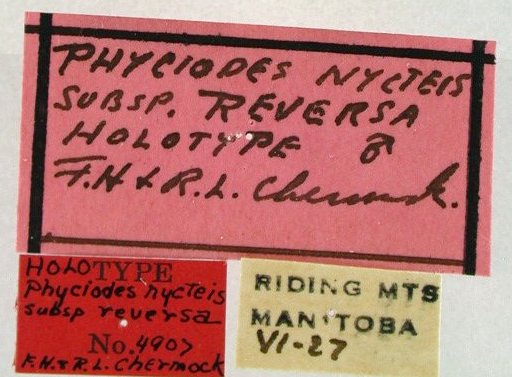 PHYCIODES NYCTEIS
SUBSP. REVERSA
HOLOTYPE ♂
F.H & R.L. Chermock.
HOLOTYPE
Phyciodes nycteis
subsp reversa
No. 4907
F.H. & R.L. Chermock
RIDING MTS
MANITOBA
VI-27